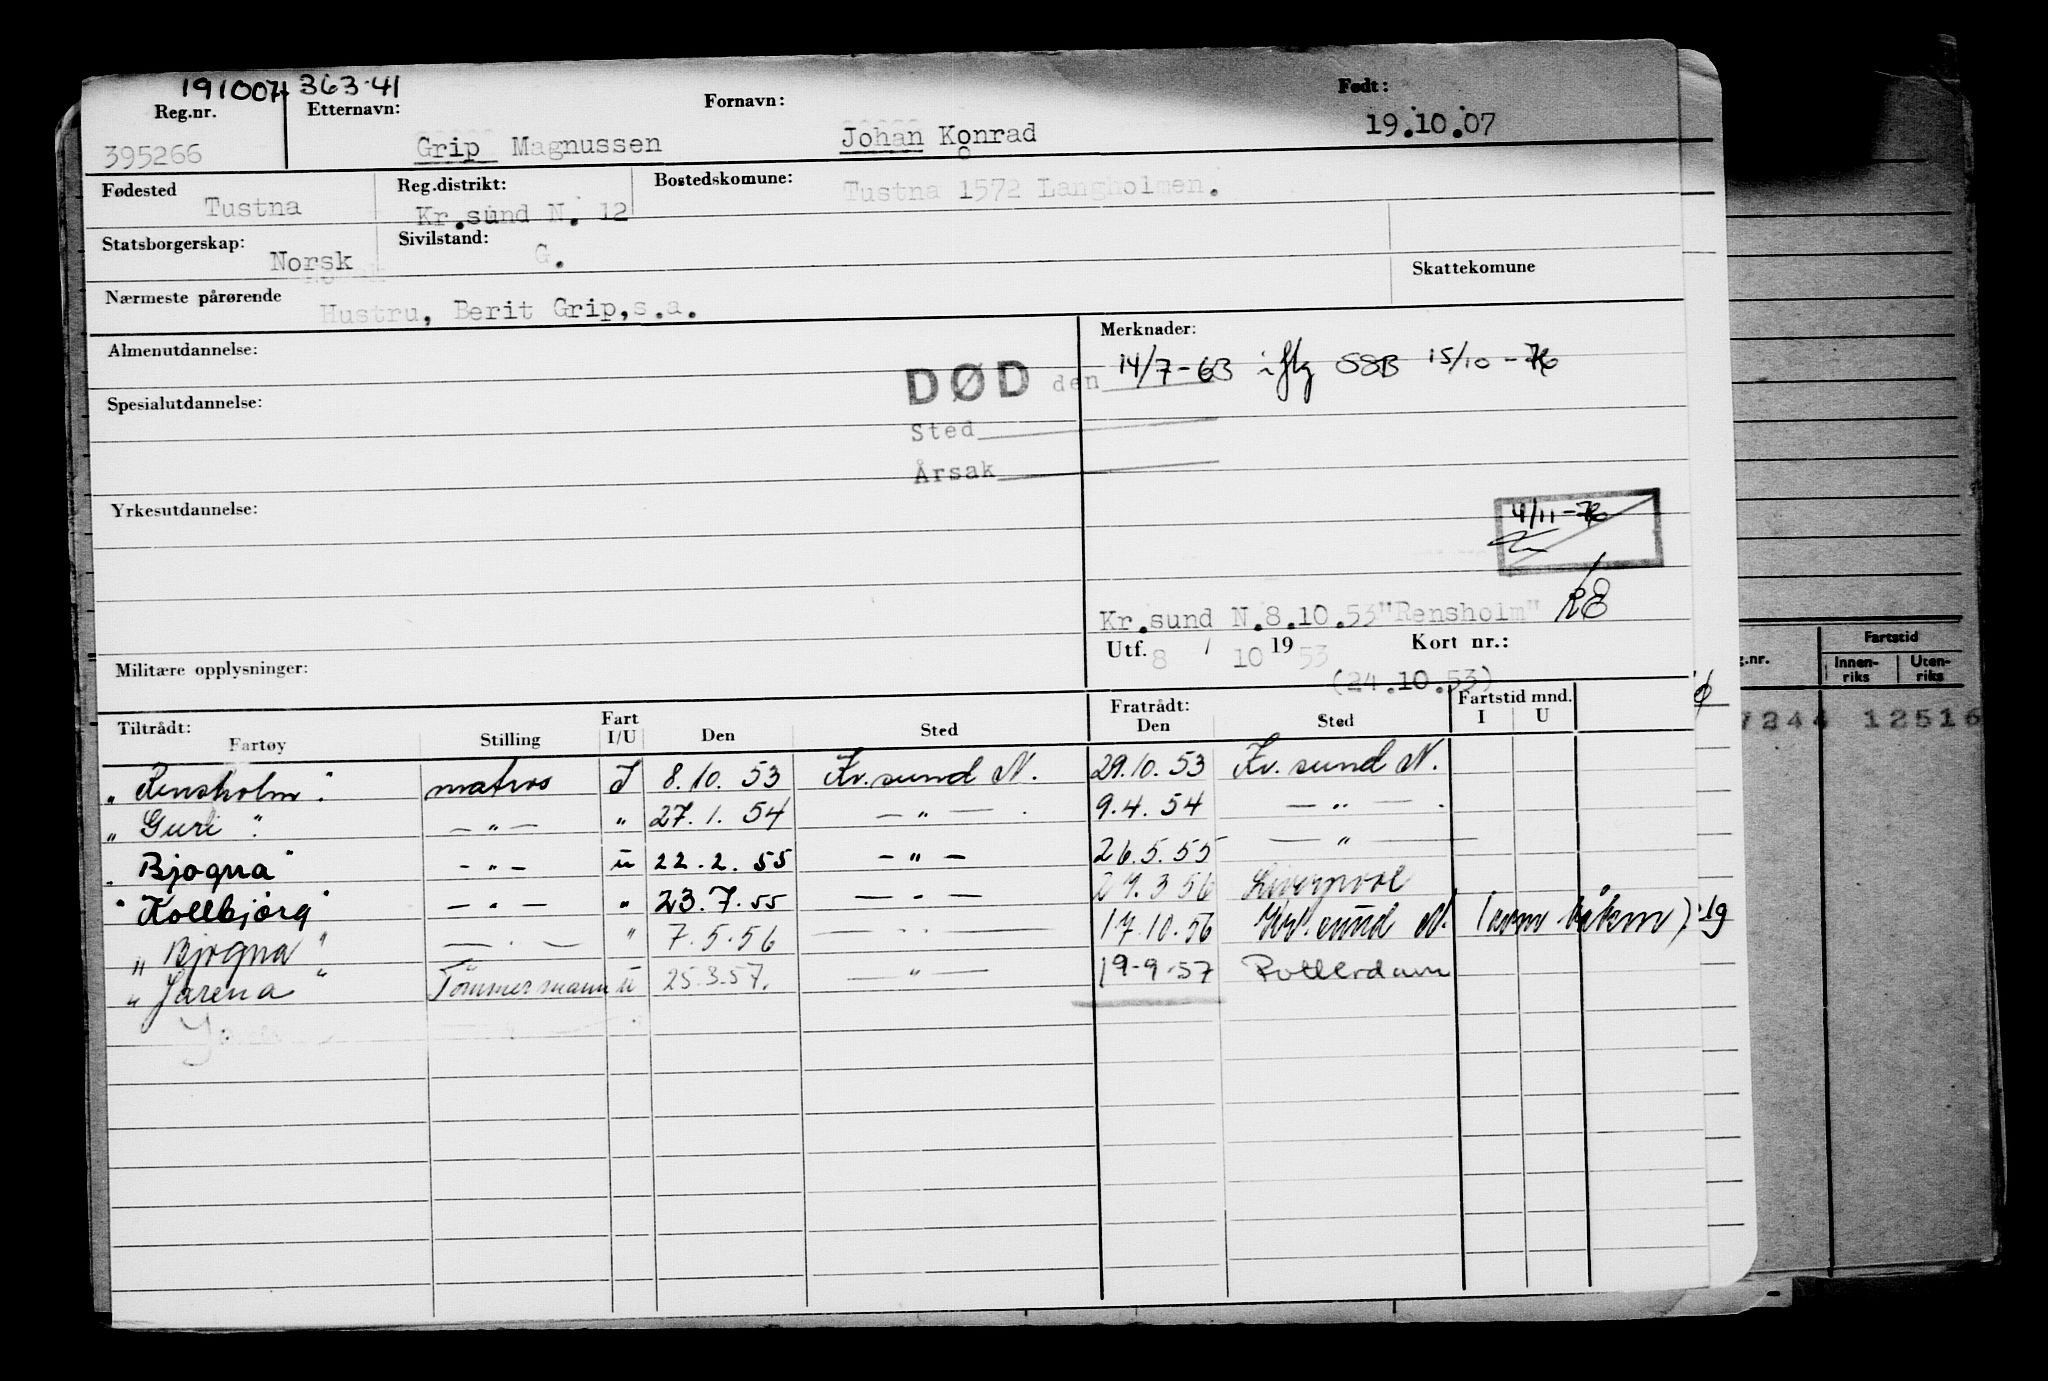 191007 363·41
Reg.nr. Etternavn: Fornavn: Født:
395266 Grip Magnussen Johan Konrad 19.10.07
Fødested Reg.distrikt: Bostedskomune:
Tustna Kr.sund N. 12 Tustna 1572 Langholmen.
Statsborgerskap: Sivilstand:
Norsk G. Skattekomune
Nærmeste pårørende
Hustru, Berit Grip,s.a.
Almenutdannelse: Merknader:
DØD den 14/7-63 iflg SSB 15/10-76
Spesialutdannelse:
Sted
Årsak
Yrkesutdannelse:
4/11-76
RE
Kr.sund N.8.10.53"Rensholm"
Utf. 8 / 10 19 53 Kort nr.:
Militære opplysninger:
(24.10.53)
Tiltrådt: Fart Fratrådt: Fartstid mnd.
Fartøy Stilling I/U Den Sted Den Sted I U
"Rensholm" matros I 8.10.53 Kr.sund N. 29.10.53 Kr.sund N.
"Guri" — " — " 27.1.54 — " — . 9.4.54 — " — .
"Bjogna" - " - u 22.2.55 — " — 26.5.55 — " —
"Kollbjørg" — " — " 23.7.55 — " — 27.3 56 Liverpool
"Bjogna" — " — " 7.5.56 — " — 17.10.56 Kr.sund N.
"Jarena" Tømmermann u 25.3.57. — " — 19-9-57 Rotterdam
Fartstid
g.nr. Innen-riks Uten-riks
7244 12516